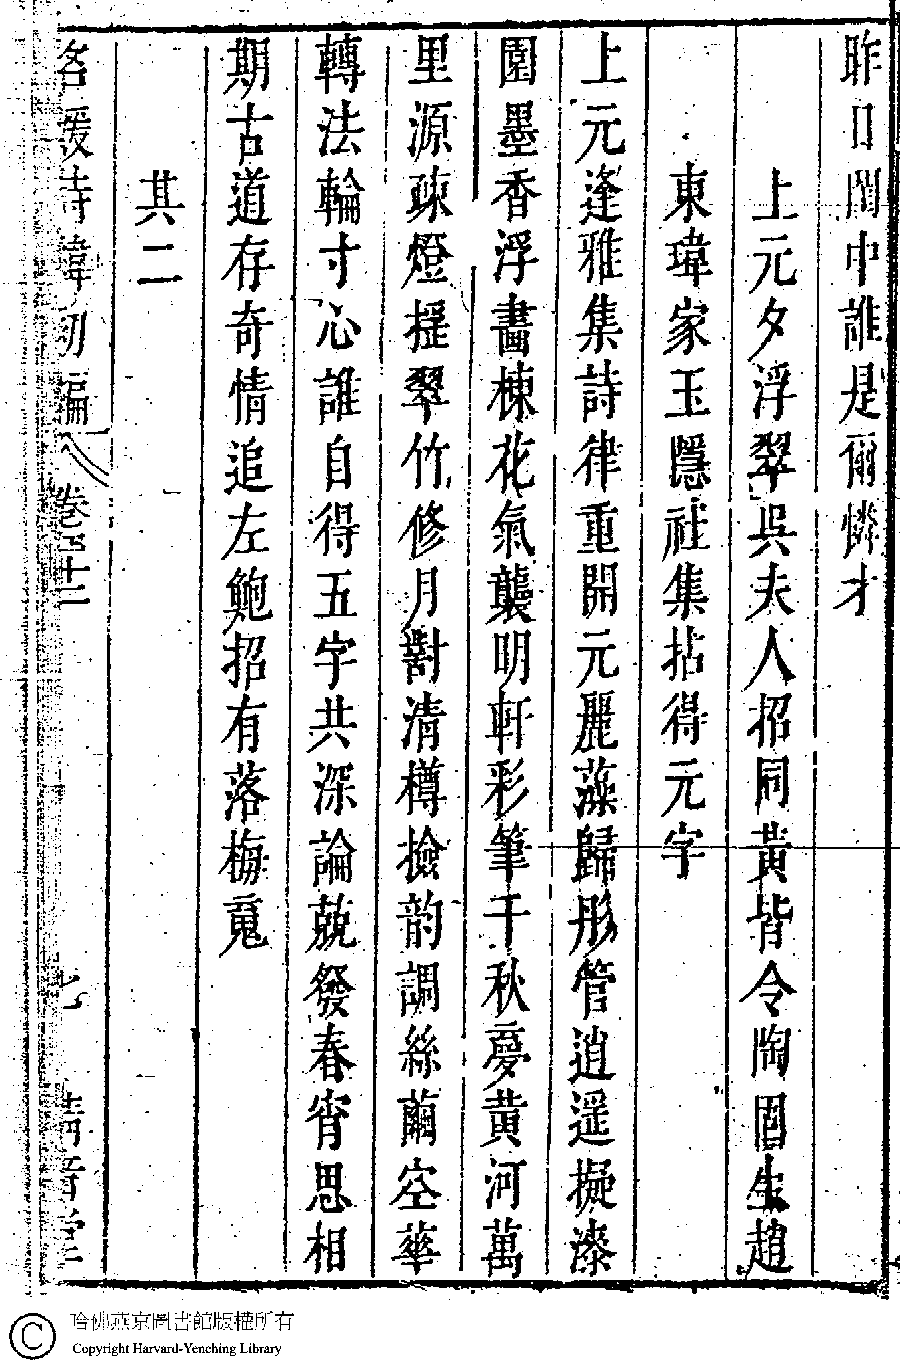 昨日閨中誰是爾憐才
上元夕浮翠吳夫人招同黃皆令陶固生趙
東瑋家玉隱社集拈得元字
上元逢雅集詩律重開元麗藻歸彤管逍遥擬漆
園墨香浮畵棟花氣襲明軒彩筆千秋夢黃河萬
里源疎燈揺翠竹修月對清樽撿韵調絲繭空華
轉法輪寸心誰自得五字共深論兢發春宵思相
期古道存奇情追左鮑招有落梅䰟
其二
名媛詩緯初編 卷之十二 七 清音堂
哈佛燕京圖書館版權所有
Copyright Harvard-Yenching Library